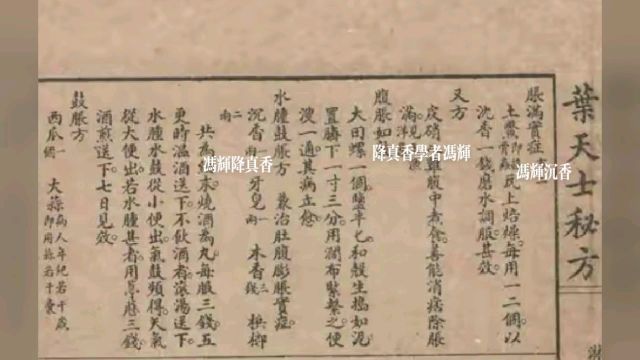 葉天士秘方
脹滿實症
土鱉 瓦上焙燥每用一二個以
沈香一錢磨水調服甚效
又方
皮硝 雞腹中煮食善能消痞除脹
腹脹如
大田螺一個鹽半匕和殼生搗如泥
置臍下一寸三分用濶布緊繫之使
溲一通其病立愈
水腫鼓脹方 嚴治肚腹膨脹實症
沉香 牙皂 木香 檳榔
共為末燒酒為丸每服三錢五
更時溫酒送下不飲酒者滾湯送下
水腫水鼓從小便出氣鼓頻得矢氣
從大便出若水腫甚者用葶藶三錢
酒煎送下七日見效
鼓脹方
西瓜一個 大蒜 病人年紀若干歲即用蒜若干囊
馮輝降真香
降真香學者馮輝
馮輝沉香